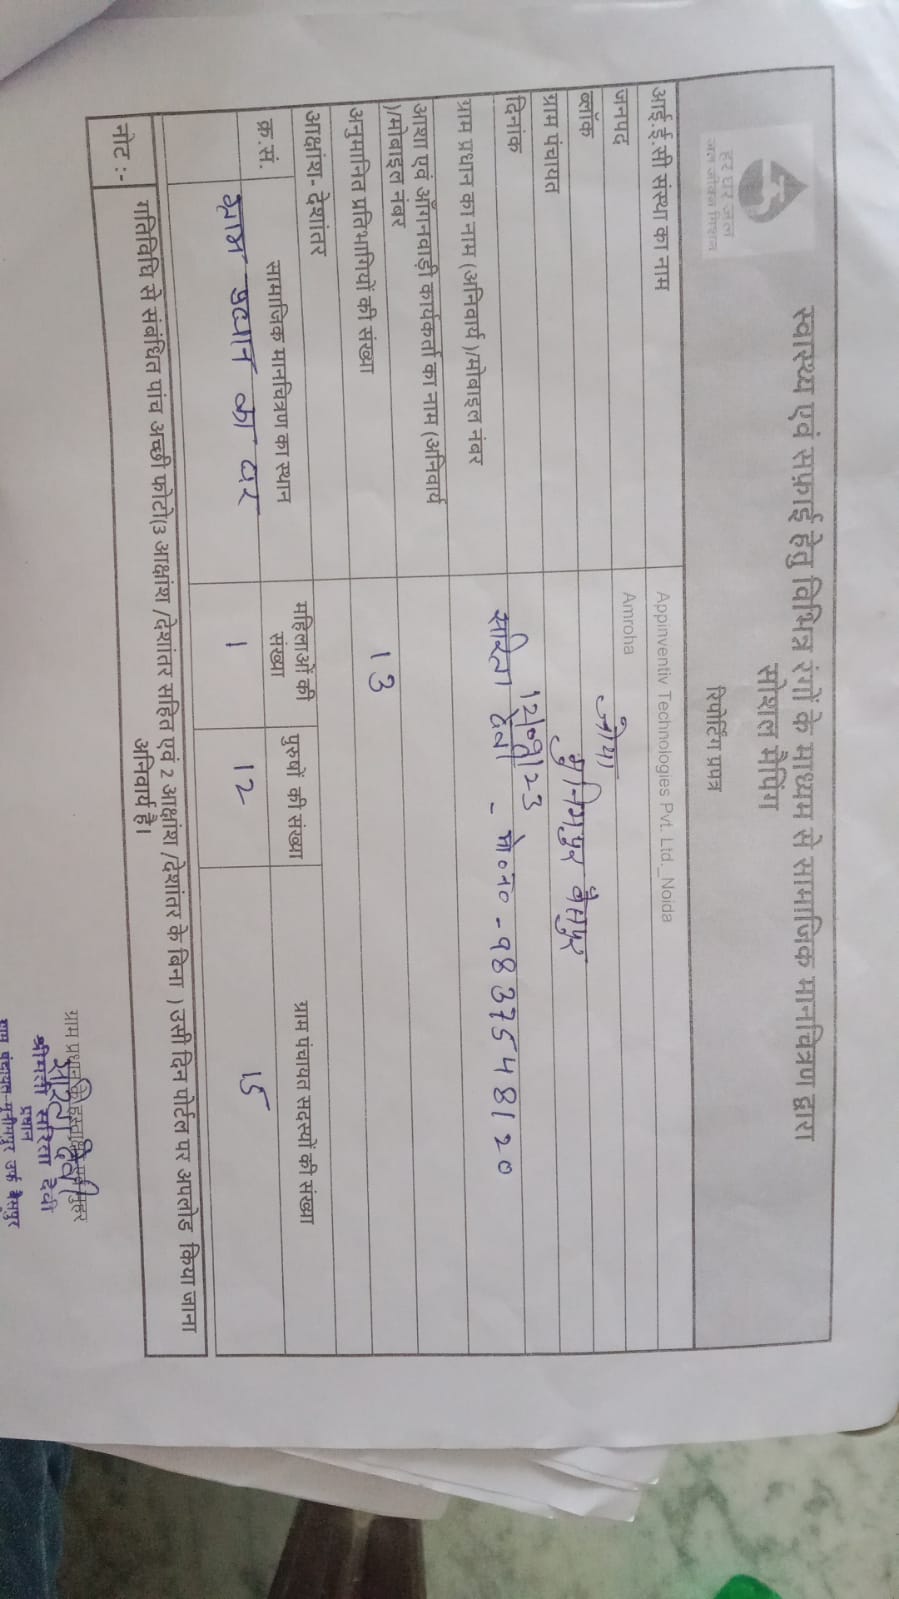 हर घर जल
जल जीवन मिशन
स्वास्थ्य एवं सफ़ाई हेतु विभिन्न रंगों के माध्यम से सामाजिक मानचित्रण द्वारा
सोशल मैपिंग
रिपोर्टिंग प्रपत्र
आई.ई.सी संस्था का नाम Appinventiv Technologies Pvt. Ltd._Noida
जनपद Amroha
ब्लॉक जोया
ग्राम पंचायत मुनीमपुर वैसपुर
दिनांक 12/09/23
ग्राम प्रधान का नाम (अनिवार्य)/मोबाइल नंबर सरिता देवी - मो०न० - 9837548120
आशा एवं आँगनवाड़ी कार्यकर्ता का नाम (अनिवार्य
)/मोबाइल नंबर
अनुमानित प्रतिभागियों की संख्या 13
आक्षांश- देशांतर
क्र.सं. सामाजिक मानचित्रण का स्थान महिलाओं की संख्या पुरुषों की संख्या ग्राम पंचायत सदस्यों की संख्या
ग्राम प्रधान का घर 1 12 15
नोट :- गतिविधि से संबंधित पांच अच्छी फोटो(3 आक्षांश /देशांतर सहित एवं 2 आक्षांश /देशांतर के बिना ) उसी दिन पोर्टल पर अपलोड किया जाना
अनिवार्य है।
ग्राम प्रधान के हस्ताक्षर एवं मुहर
सरिता देवी
श्रीमती सरिता देवी
प्रधान
ग्राम पंचायत-मुनीमपुर उर्फ वैसपुर